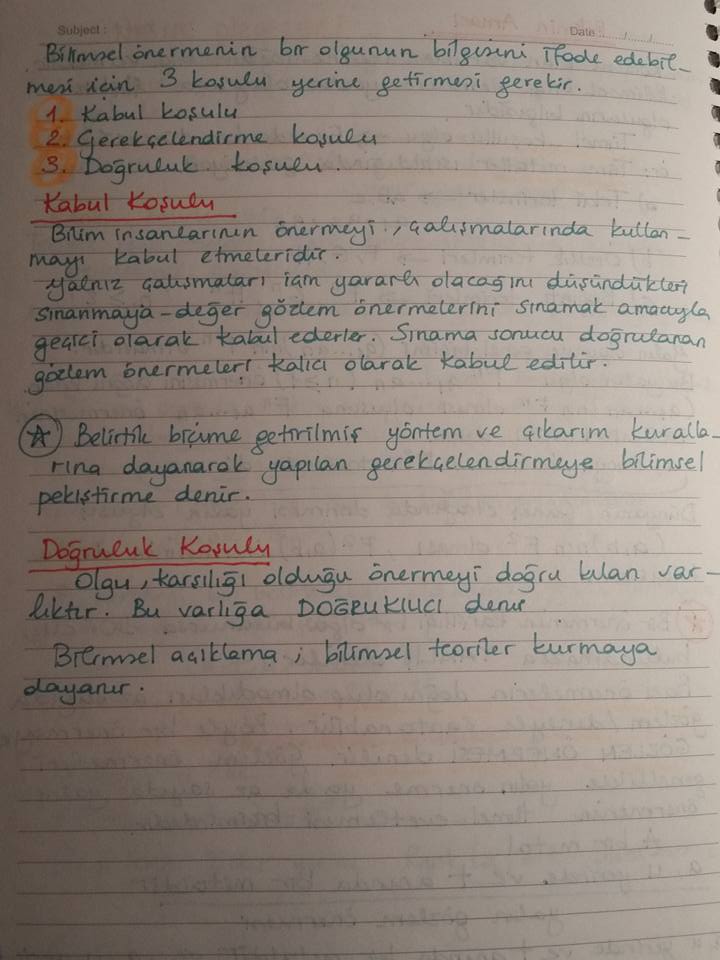 Subject :
Date : ....../....../......
Bilimsel önermenin bir olgunun bilgisini ifade edebil-
mesi için 3 koşulu yerine getirmesi gerekir.
1. Kabul koşulu
2. Gerekçelendirme koşulu
3. Doğruluk koşulu.
Kabul Koşulu
Bilim insanlarının önermeyi, çalışmalarında kullan-
mayı kabul etmeleridir.
Yalnız çalışmaları için yararlı olacağını düşündükleri
sınanmaya-değer gözlem önermelerini sınamak amacıyla
geçici olarak kabul ederler. Sınama sonucu doğrulanan
gözlem önermeleri kalıcı olarak kabul edilir.
Belirtik biçime getirilmiş yöntem ve çıkarım kuralla-
rına dayanarak yapılan gerekçelendirmeye bilimsel
pekiştirme denir.
Doğruluk Koşulu
Olgu, karşılığı olduğu önermeyi doğru kılan var-
lıktır. Bu varlığa DOĞRUKILICI denir
Bilimsel açıklama; bilimsel teoriler kurmaya
dayanır.